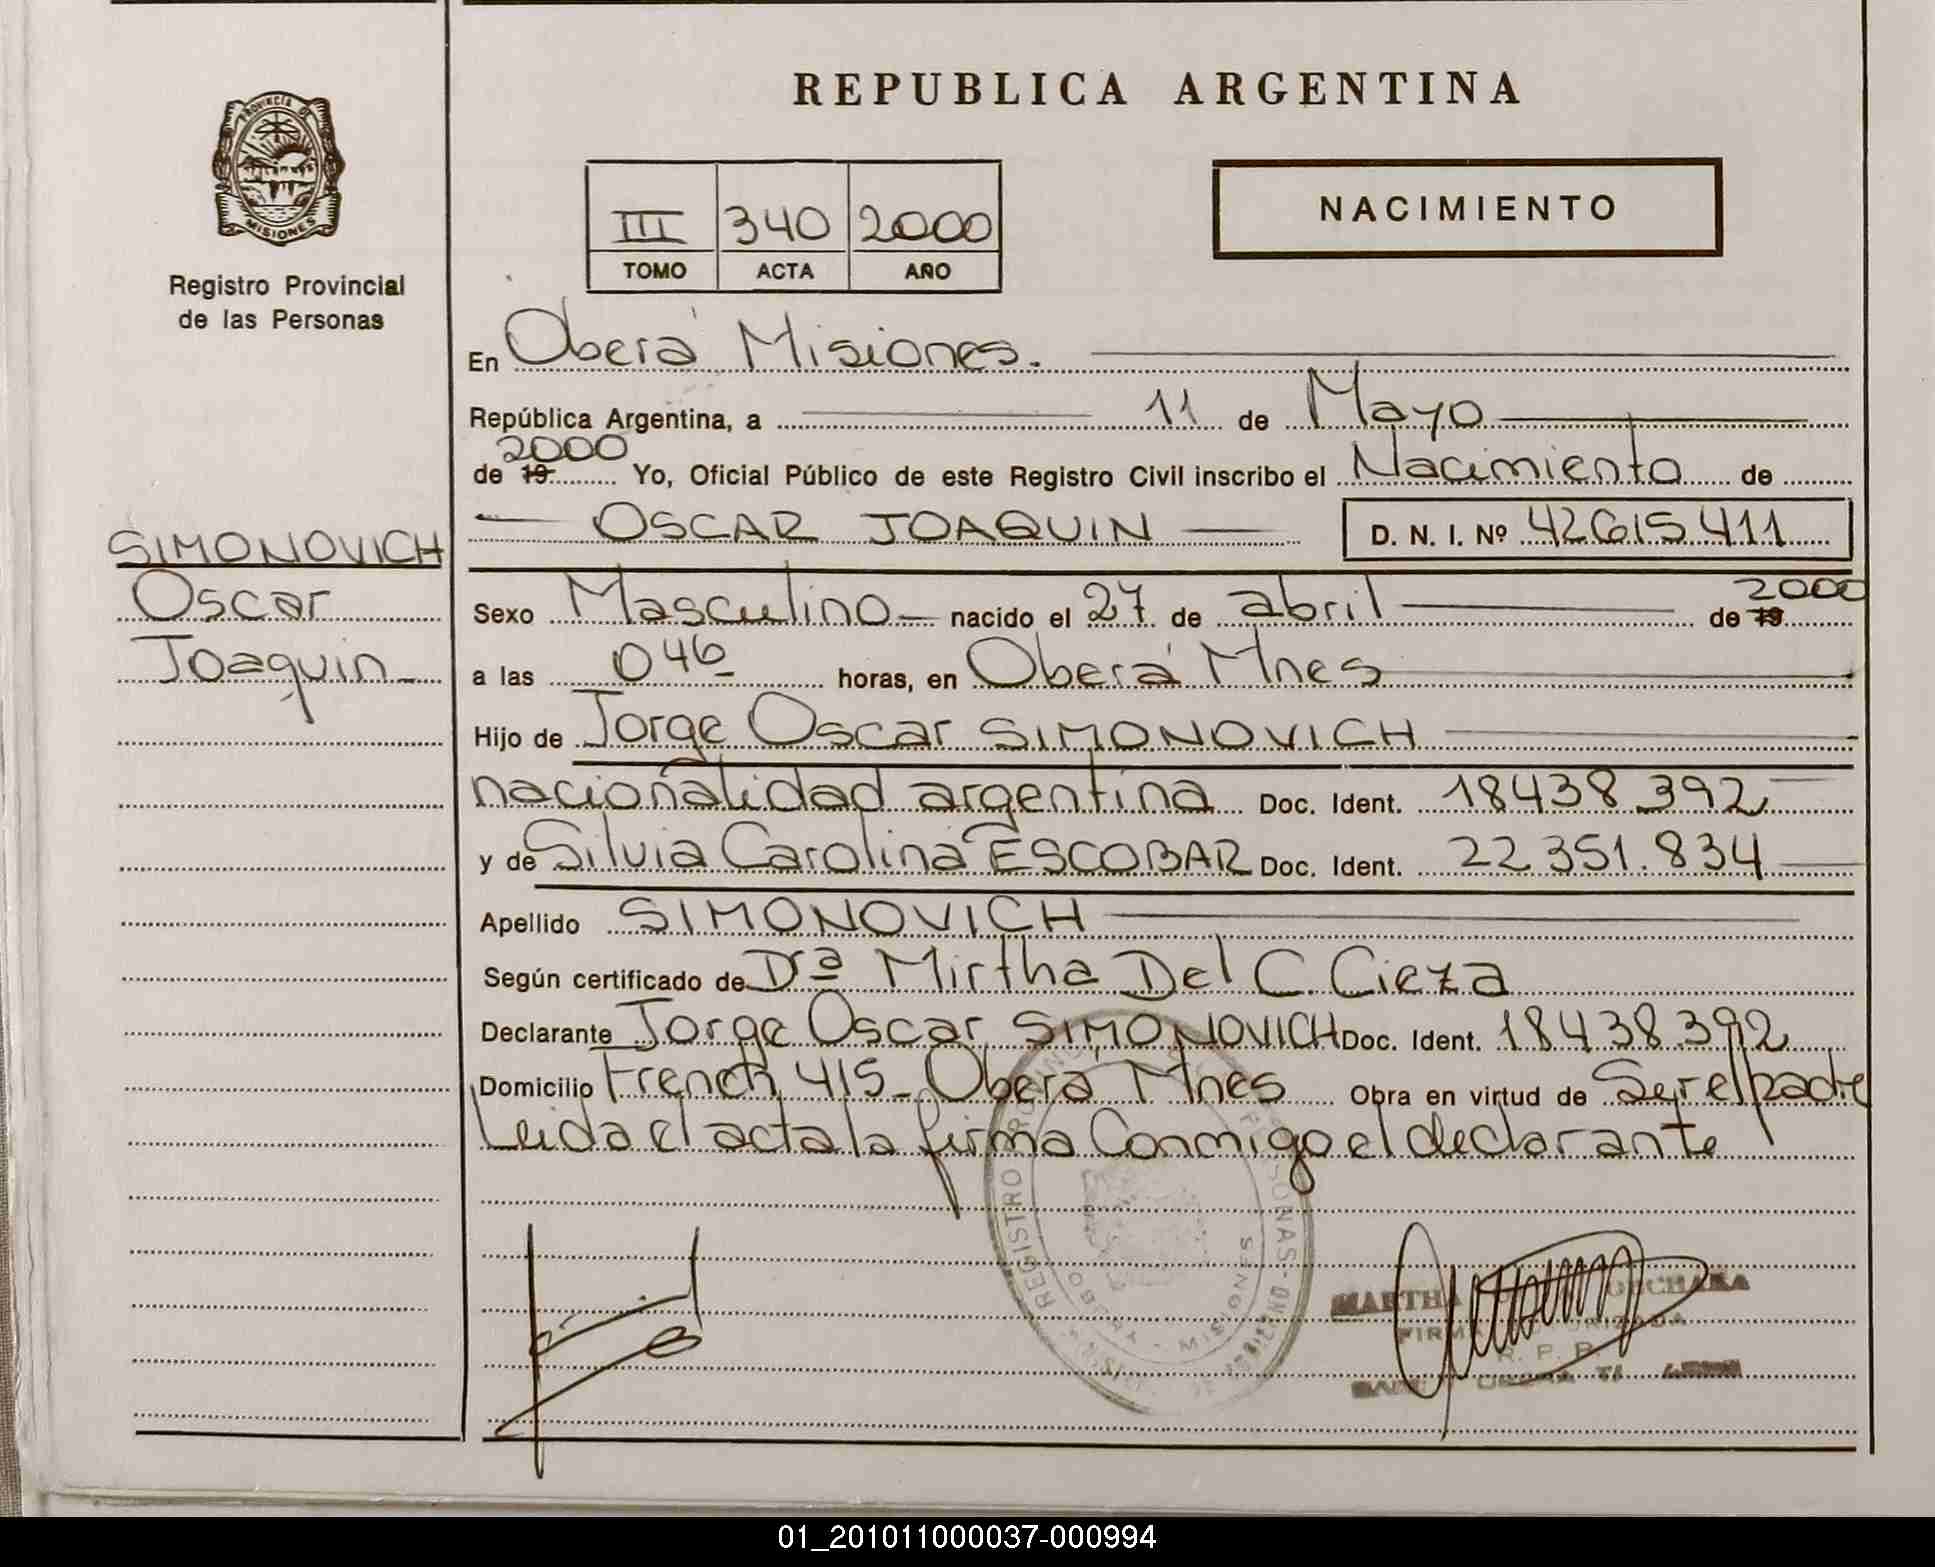 REPUBLICA ARGENTINA
PROVINCIA DE
MISIONES
Registro Provincial
de las Personas
III 340 2000
TOMO ACTA AÑO
NACIMIENTO
En Oberá Misiones.
República Argentina, a 11 de Mayo
2000
de 19 Yo, Oficial Público de este Registro Civil inscribo el Nacimiento de
OSCAR JOAQUIN D. N. I. Nº 42615.411
SIMONOVICH
Oscar
Joaquin
2000
Sexo Masculino nacido el 27 de abril de 19
a las 0 46 horas, en Oberá Mnes
Hijo de Jorge Oscar SIMONOVICH
nacionalidad argentina Doc. Ident. 18438.392
y de Silvia Carolina ESCOBAR Doc. Ident. 22351.834
Apellido SIMONOVICH
Según certificado de Drª Mirtha Del C. Cieza
Declarante Jorge Oscar SIMONOVICH Doc. Ident. 18438.392
Domicilio French 415 - Oberá Mnes Obra en virtud de Ser el padre
Leida el acta la firma Conmigo el declarante
REGISTRO
MISIONES
MARTHA
R. P. P.
01_201011000037-000994